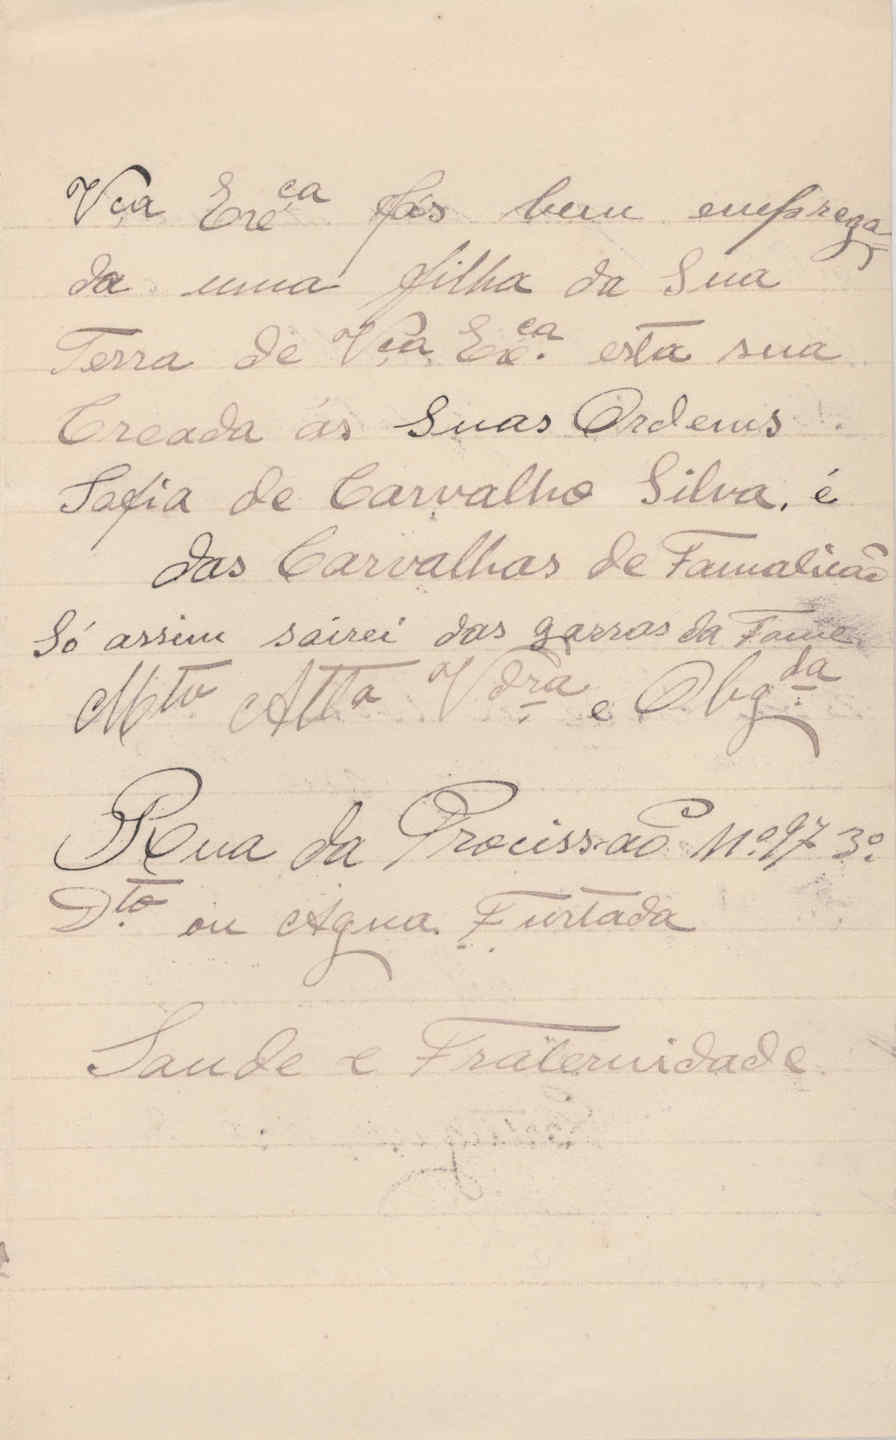 Vcia Exe.ca fás bem emprega-
da uma filha da Sua
Terra de Vcia Exe.ca esta sua
Creada ás Suas Ordens.
Sofia de Carvalho Silva, é
das Carvalhas de Famalicão
Só assim sairei das garras da Fome
Mto Atta Vdra e Obgda
Rua da Procissão Nº 97 3º
Dto ou Agua Furtada
Saude e Fraternidade